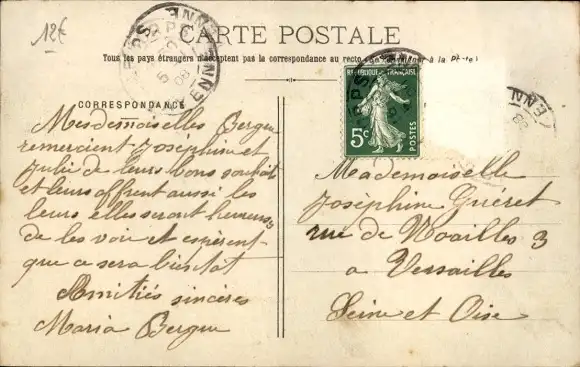 12€
CARTE POSTALE
Tous les pays étrangers n'acceptent pas la correspondance au recto
CORRESPONDANCE
Mesdemoiselles Bergue
remercient Joséphine et
Julie de leurs bons souhaits
et leurs offrent aussi les
leurs elles seront heureuses
de les voir et espèrent
que ce sera bientôt
Amitiés sincères
Maria Bergue
REPUBLIQUE FRANÇAISE
5c
POSTES
Mademoiselle
Joséphine Guéret
rue de Noailles 3
a Versailles
Seine et Oise